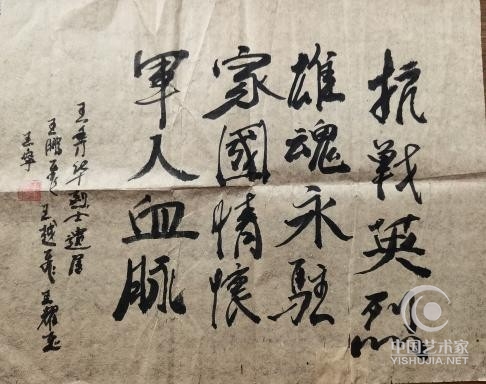 抗戰英烈
雄魂永駐
家國情懷
軍人血脉
烈士遺屬
王鹏
王越飛
王寧
中国艺术家
YISHUJIA.NET